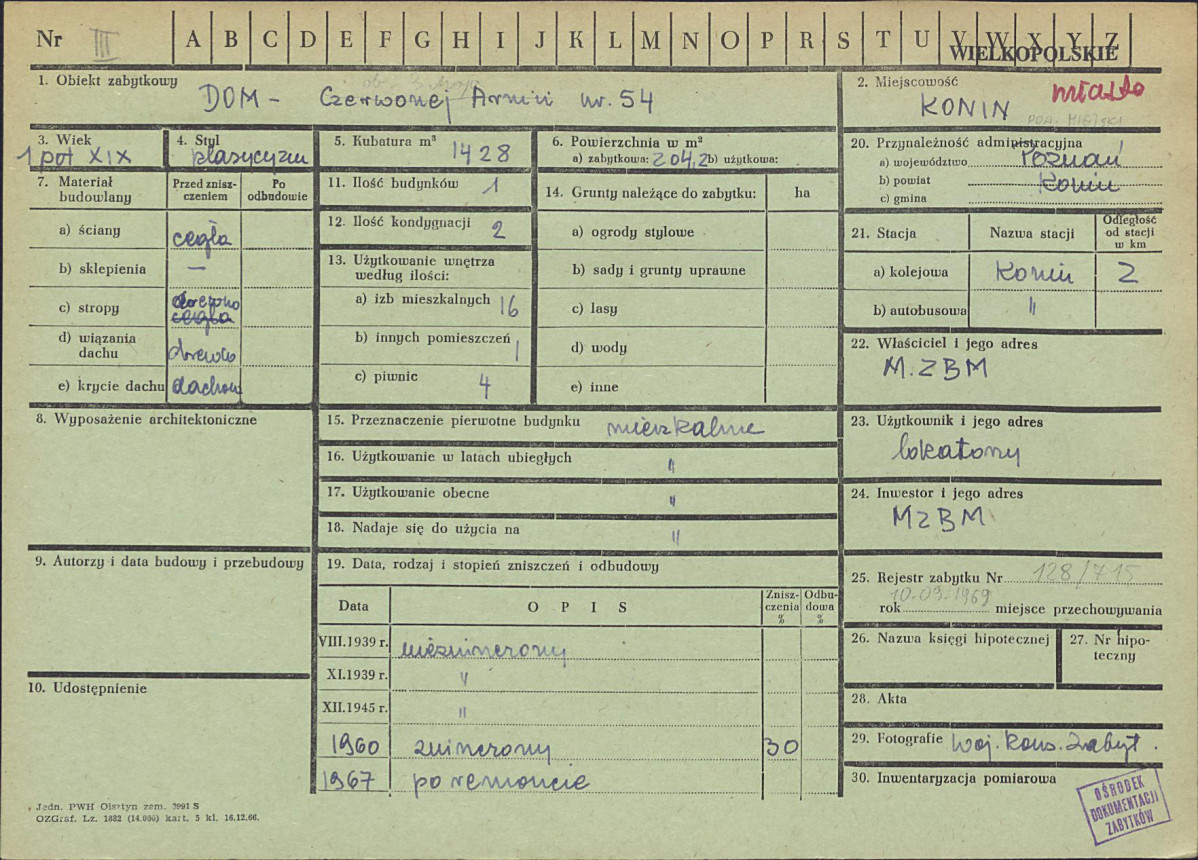 Nr III A B C D E F G H I J K L M N O P R S T U V W X Y Z
WIELKOPOLSKIE
1. Obiekt zabytkowy
DOM - Czerwonej Armii nr. 54
2. Miejscowość
KONIN miasto
POW. MIEJSKI
3. Wiek
1 poł XIX
4. Styl
klasycyzm
5. Kubatura m³ 1428
6. Powierzchnia w m²
a) zabytkowa: 204,2 b) użytkowa:
20. Przynależność administracyjna
a) województwo Poznań
b) powiat Konin
c) gmina
7. Materiał budowlany
Przed zniszczeniem
Po odbudowie
a) ściany cegła
b) sklepienia —
c) stropy drewno
cegła
d) wiązania dachu drewno
e) krycie dachu dachów
11. Ilość budynków 1
12. Ilość kondygnacji 2
13. Użytkowanie wnętrza
według ilości:
a) izb mieszkalnych 16
b) innych pomieszczeń 1
c) piwnic 4
14. Grunty należące do zabytku: ha
a) ogrody stylowe
b) sady i grunty uprawne
c) lasy
d) wody
e) inne
21. Stacja Nazwa stacji Odległość od stacji w km
a) kolejowa Konin 2
b) autobusowa "
22. Właściciel i jego adres
M.ZBM
8. Wyposażenie architektoniczne
15. Przeznaczenie pierwotne budynku mieszkalne
16. Użytkowanie w latach ubiegłych "
17. Użytkowanie obecne "
18. Nadaje się do użycia na "
23. Użytkownik i jego adres
lokatorzy
24. Inwestor i jego adres
MZBM
9. Autorzy i data budowy i przebudowy
19. Data, rodzaj i stopień zniszczeń i odbudowy
Data OPIS Zniszczenia % Odbudowa %
VIII.1939 r. niezniszczony
XI.1939 r. "
XII.1945 r. "
1960 zniszczony 30
1967 po remoncie
25. Rejestr zabytku Nr 128/715
10-09-1969
rok miejsce przechowywania
26. Nazwa księgi hipotecznej
27. Nr hipoteczny
10. Udostępnienie
28. Akta
29. Fotografie Woj. Kons. Zabyt.
30. Inwentaryzacja pomiarowa
OŚRODEK
DOKUMENTACJI
ZABYTKÓW
Jedn. PWH Olsztyn zam. 3991 S
OZGraf. Lz. 1882 (14.000) kart. 5 kl. 16.12.66.